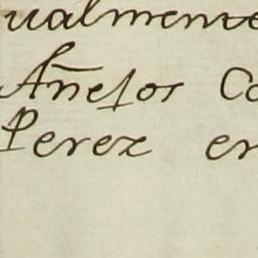 ualmente
Añejos Co
Perez en